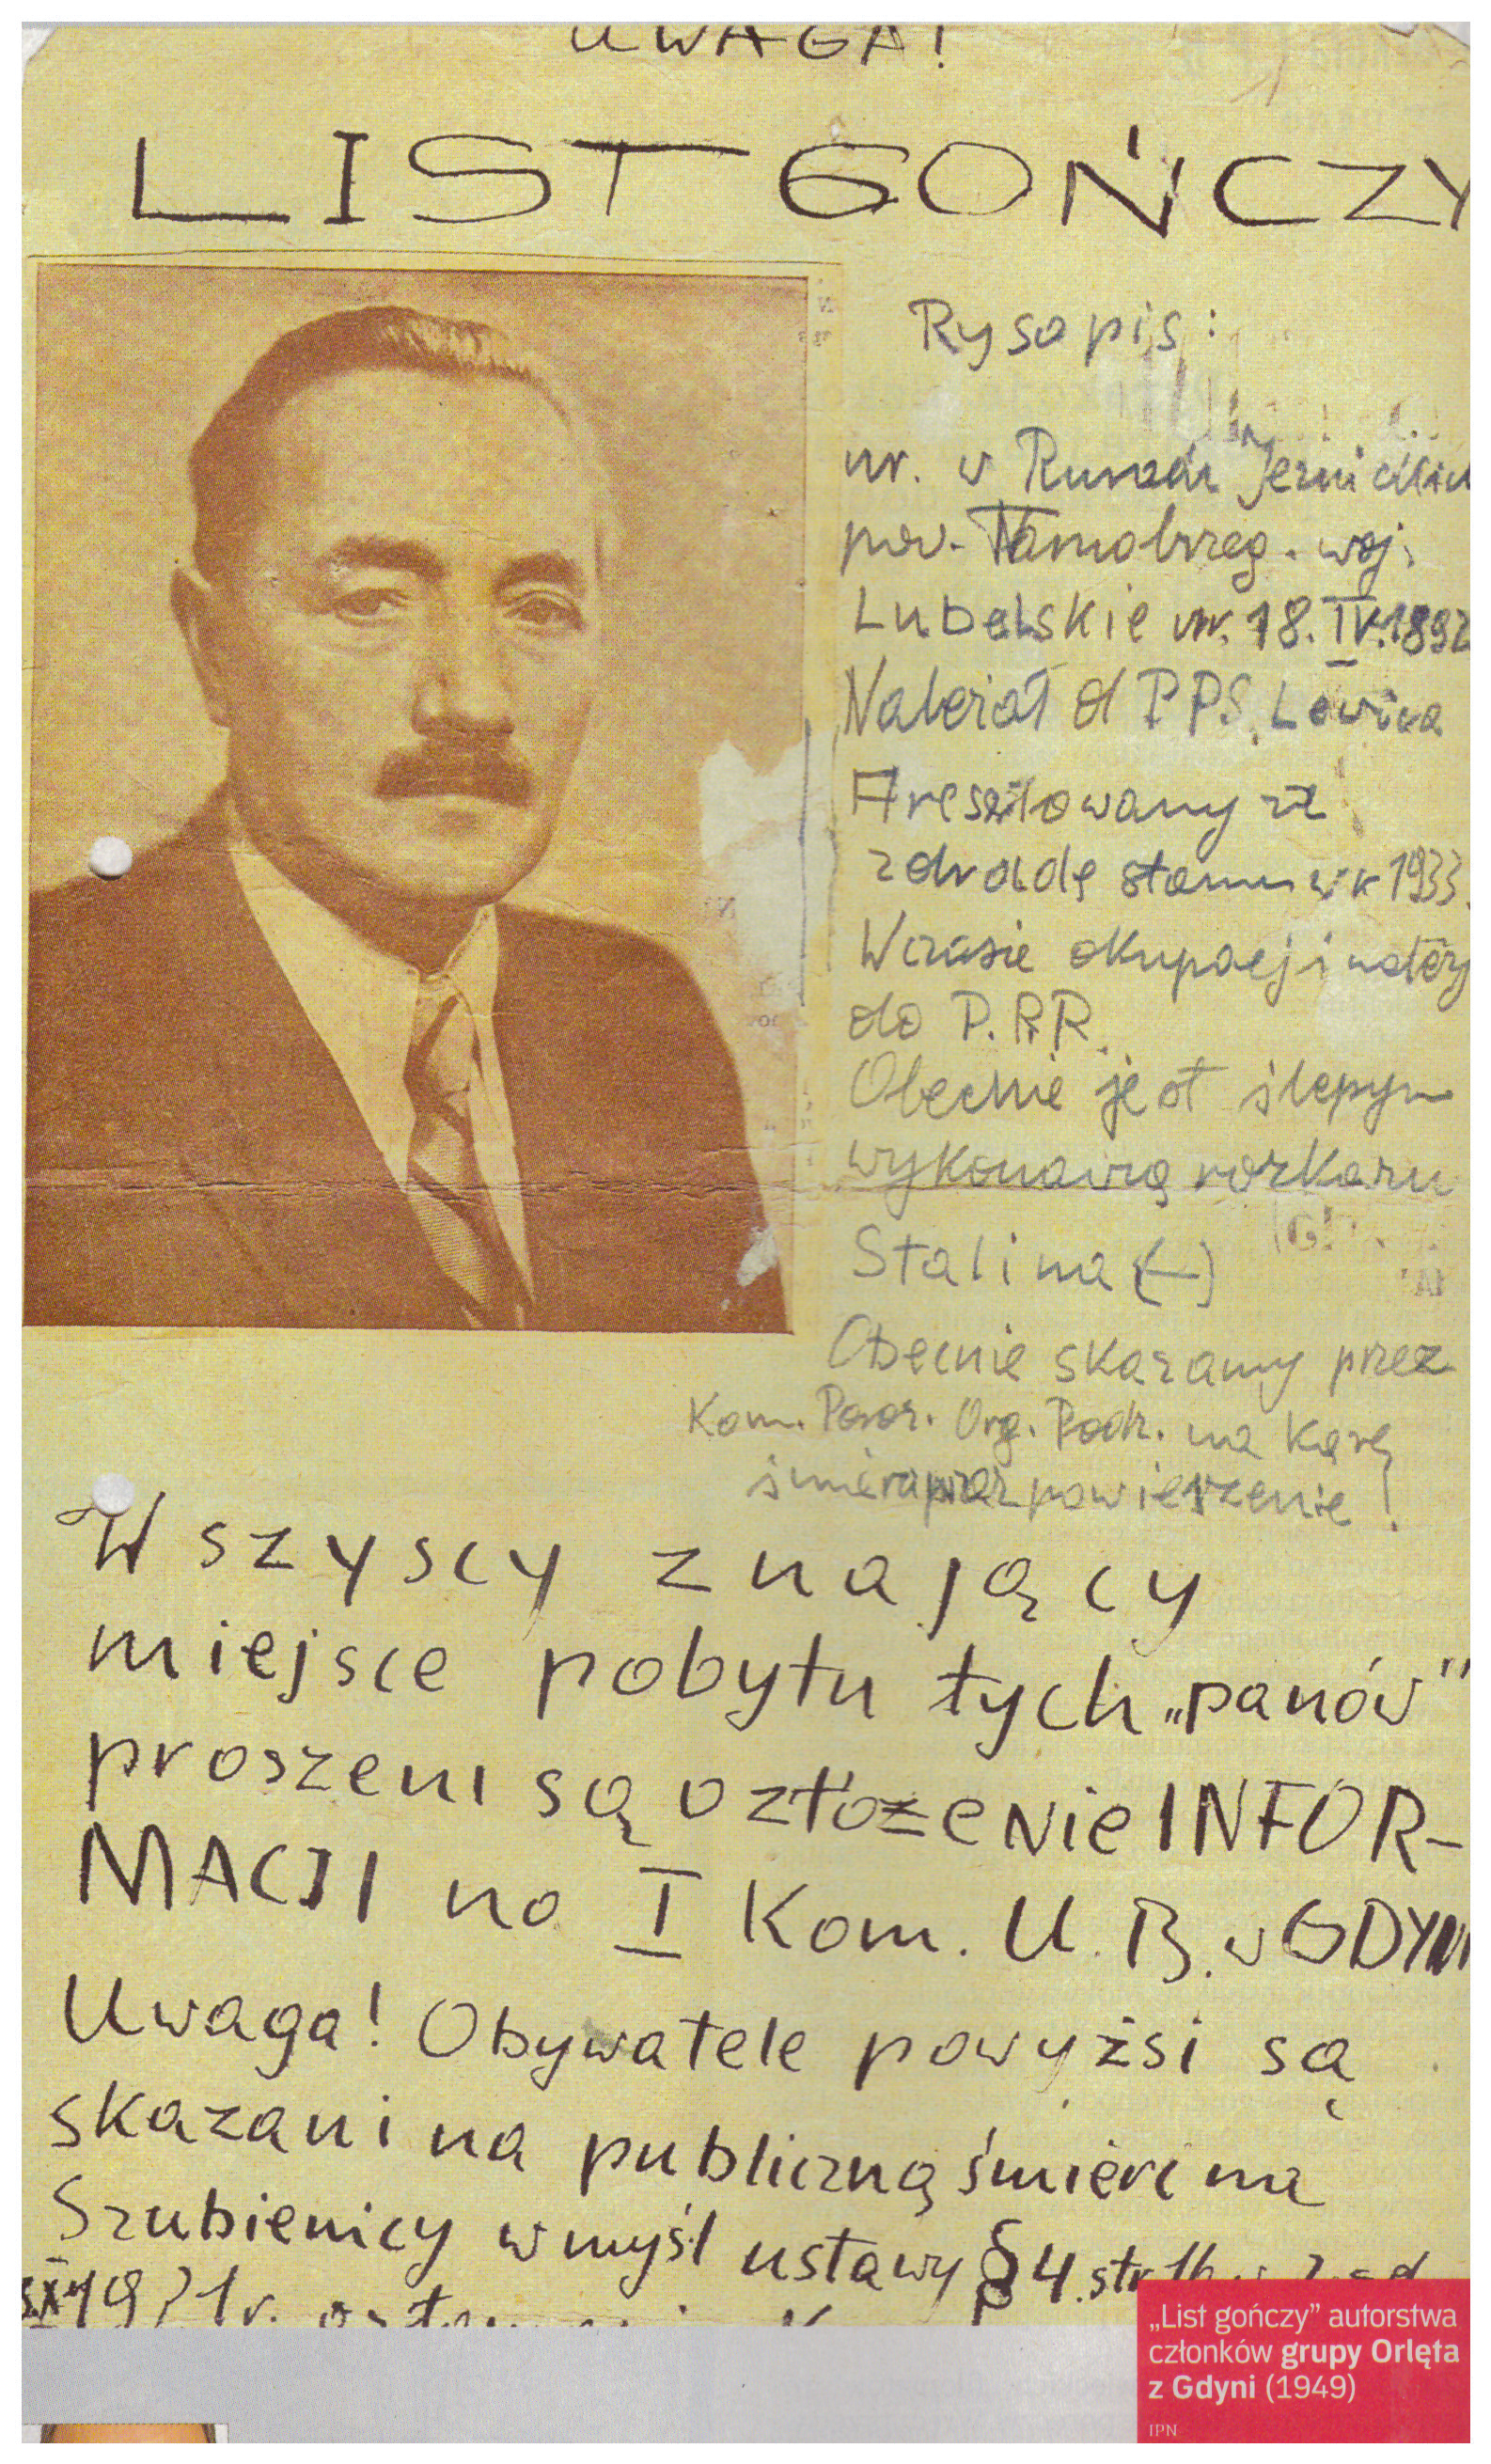 UWAGA!
LIST GOŃCZY
Rysopis:
ur. w
pow. Tarnobrzeg. woj.
Lubelskie ur. 18.IV.1892
Należał d PPS. Lewica
Aresztowany za
zdradę stanu w r 1933.
W czasie okupacji należy
do P.P.R.
Obecnie jest ślepym
wykonawcą rozkazu
Stalina (-)
Obecnie skazany przez
Kom. Org. Podz. na karę
śmierci przez powieszenie!
Wszyscy znający
miejsce pobytu tych „panów"
proszeni są o złożenie INFOR-
MACJI na I Kom. U.B. w GDYNI
Uwaga! Obywatele powyżsi są
skazani na publiczną śmierć na
Szubienicy w myśl ustawy § 4. str.
„List gończy” autorstwa
członków grupy Orlęta
z Gdyni (1949)
IPN